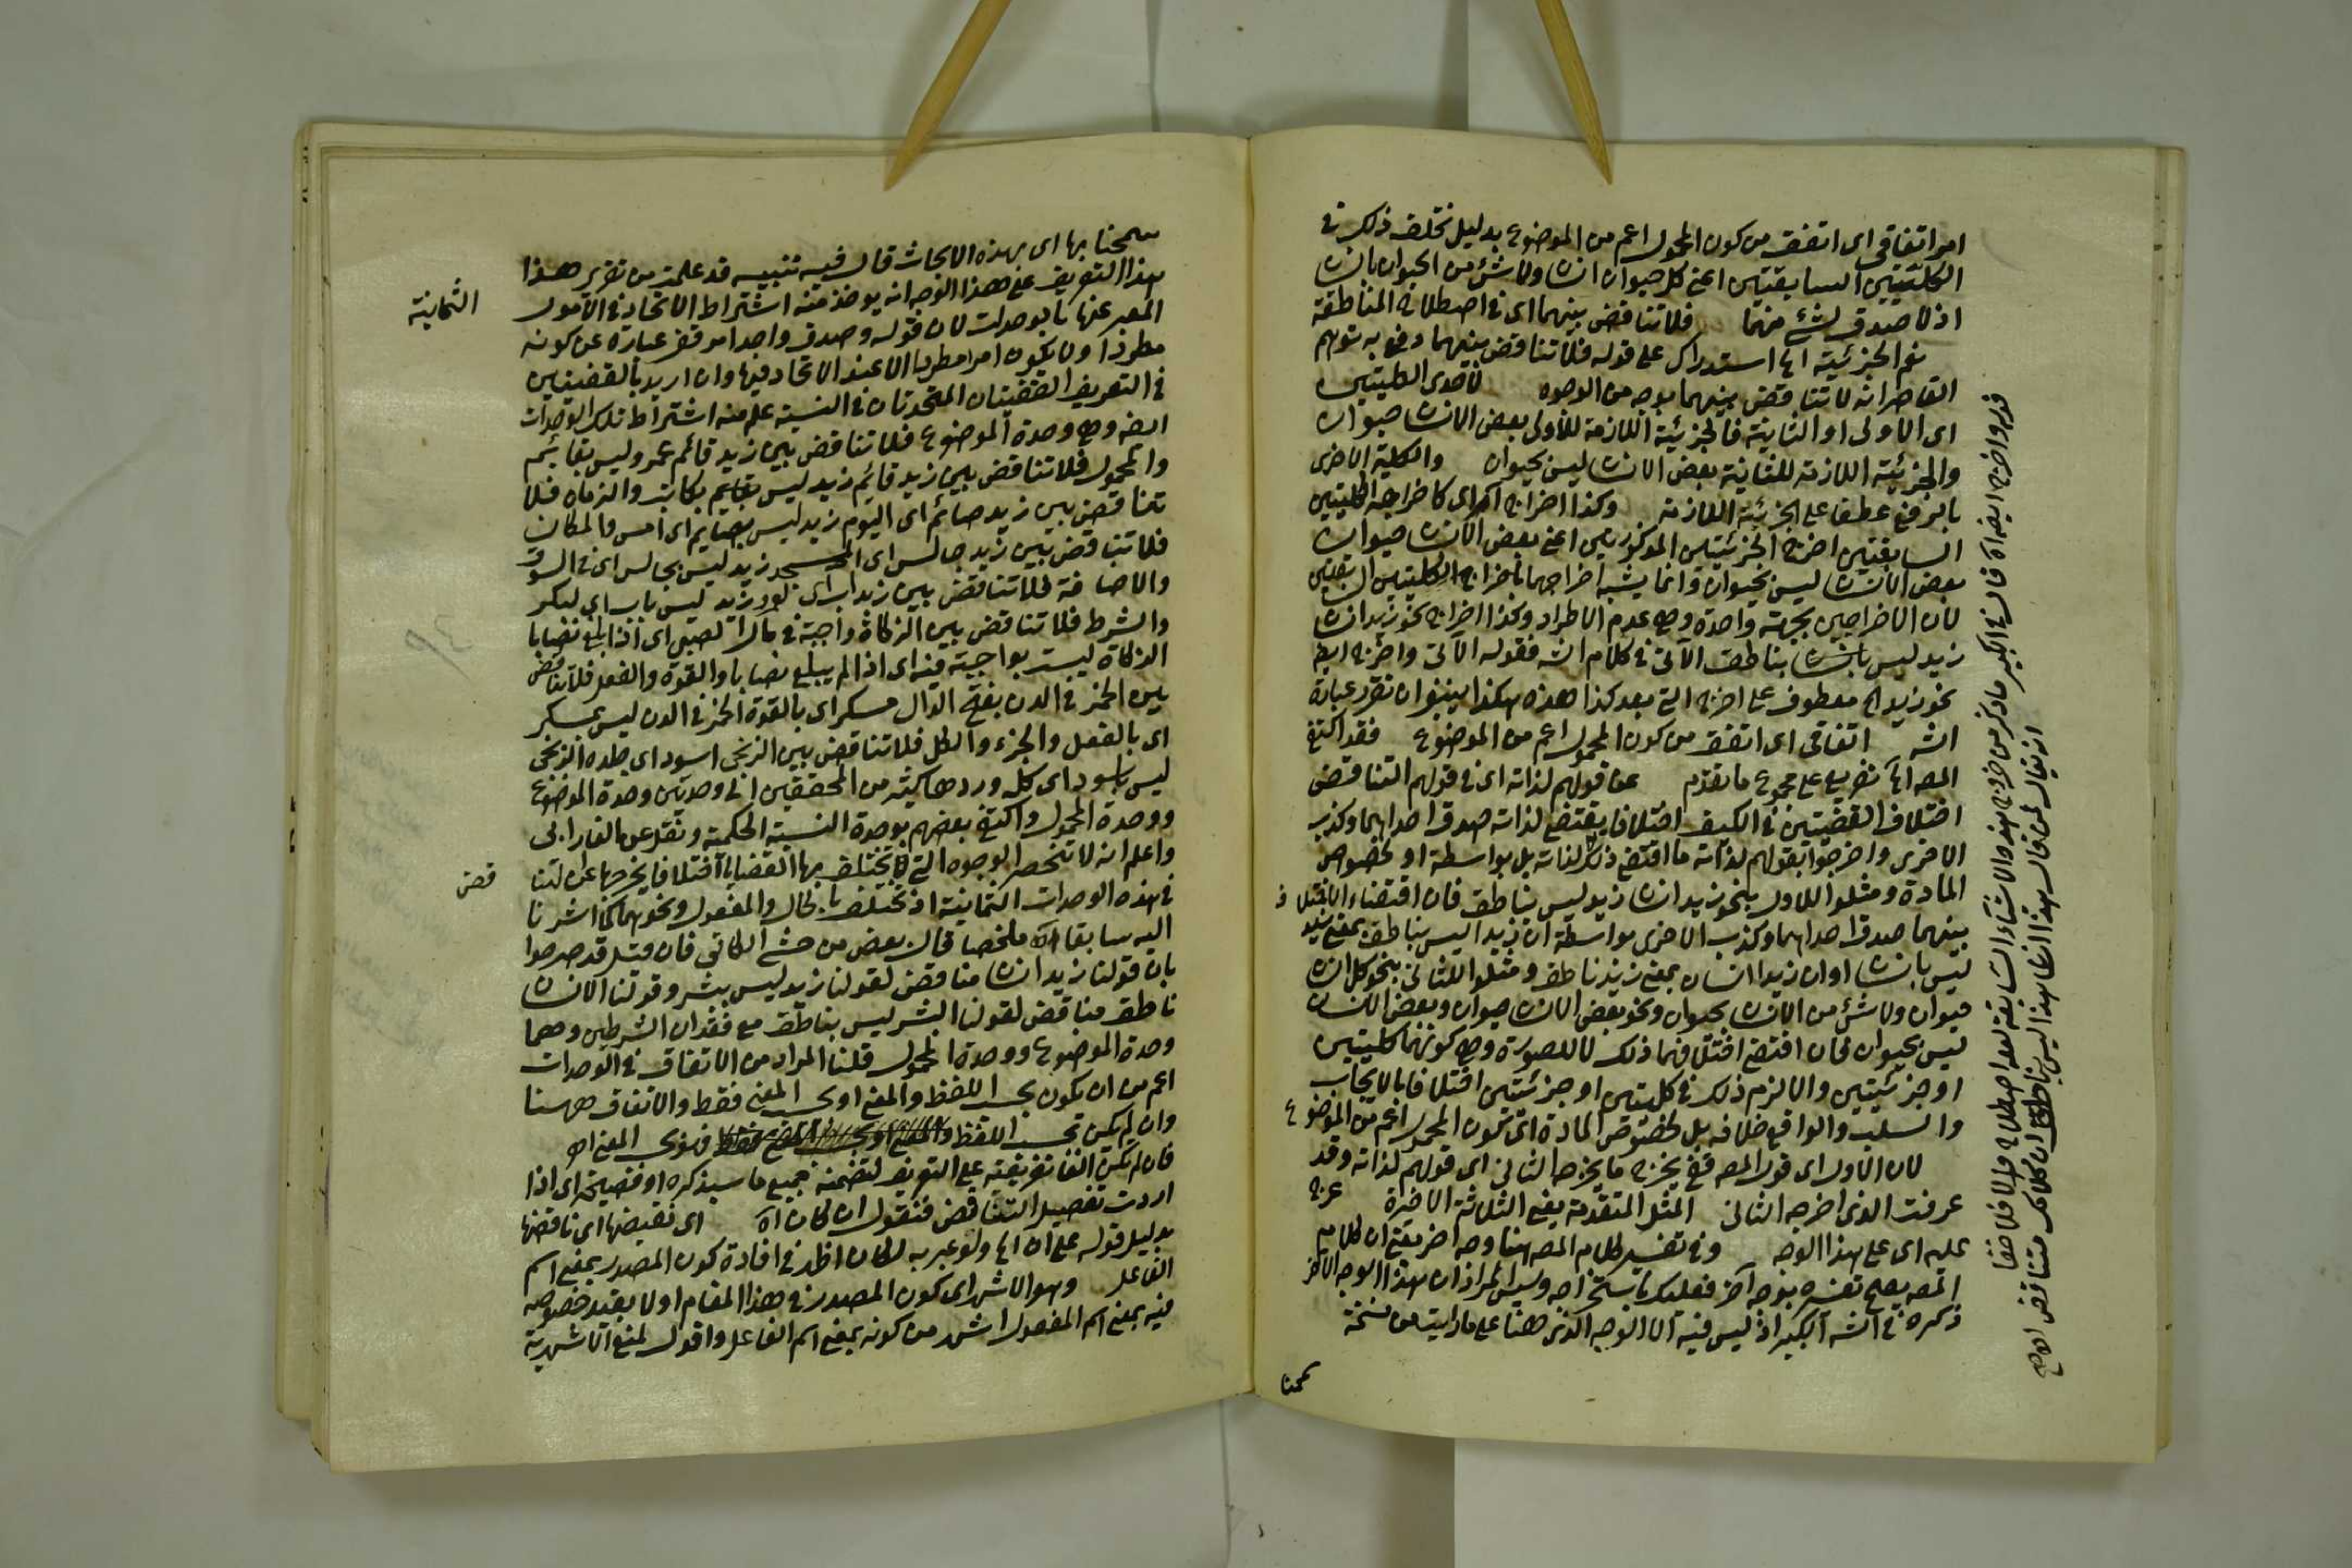 امر اتفاقى اى اتفق من كون المحمول اعم من الموضوع بدليل تخلف ذلك فى
الكليتين السابقتين اعنى كل حيوان انسان ولا شئ من الحيوان بانسان
اذ لا صدق لشئ منهما فلا تناقض بينهما اى فى اصطلاح المناطقة
نعم الجزئية اه استدراك على قوله فلا تناقض بينهما دفع به توهم
القاصر انه لا تناقض بينهما بوجه من الوجوه لاحدى الكليتين
اى الاولى او الثانية فالجزئية اللازمة للاولى بعض الانسان حيوان
والجزئية اللازمة للثانية بعض الانسان ليس بحيوان والكلية الاخرى
بالرفع عطفا على الجزئية اللازمة وكذا اخراج اه اى كاخراجه الكليتين
السابقتين اخرج الجزئيتين المذكورتين اعنى بعض الانسان حيوان
بعض الانسان ليس بحيوان وانما يشبه اخراجهما باخراج الكليتين السابقتين
لان الاخراجين بجهة واحدة وهى عدم الاطراد وكذا اخراج نحو زيد انسان
زيد ليس بناطق الآتى فى كلام الشه فقوله الآتى واخرج ايضا
نحو زيد اه معطوف على اخرج التى بعد كذا هذه هكذا ينبغى ان تقرر عبارة
الشه اتفاقى اى اتفق من كون المحمول اعم من الموضوع فقد اكتفى
المصه اه تفريع على مجموع ما تقدم عن قولهم لذاته اى فى قولهم التناقض
اختلاف القضيتين فى الكيف اختلافا يقتضى لذاته صدق احداهما وكذب
الاخرى واخرجوا بقولهم لذاته ما اقتضى ذلك لا لذاته بل بواسطة او لخصوص
المادة ومثلوا للاول بنحو زيد انسان زيد ليس بناطق فان اقتضاء الاختلاف
بينهما صدق احداهما وكذب الاخرى بواسطة ان زيدا ليس بناطق بمعنى زيد
ليس بانسان او ان زيدا انسان بمعنى زيد ناطق ومثلوا للثانى بنحو كل انسان
حيوان ولا شئ من الانسان بحيوان ونحو بعض الانسان حيوان وبعض الانسان
ليس بحيوان فان اقتضى اختلافهما ذلك لا للصورة وهى كونهما كليتين
او جزئيتين والا لزم ذلك فى كل كليتين او جزئيتين اختلفا بالايجاب
والسلب والواقع خلافه بل لخصوص المادة اى كون المحمول اعم من الموضوع
لان الاول اى قول المصه فقط يخرج ما يخرجه الثانى اى قولهم لذاته وقد
عرفت الذى اخرجه الثانى المثل المتقدمة يعنى الثلاثة الاخيرة خرج
عليه اى على هذا الوجه وفى تفسير كلام المصه هنا وجه اخر يعنى ان كلام
المصه يصح تفسيره بوجه آخر فعليك باستخراجه وليس المراد ان هذا الوجه الآخر
ذكره فى الشه الكبير اذ ليس فيه الا الوجه الذى هنا على ما رايت من نسخة
سمحنا
سمحنا بها اى بهذه الابحاث قال فيه تنبيه قد علمت من تقرير هذا
هذا التعريف على هذا الوجه انه يؤخذ منه اشتراط الاتحاد فى الامور
الثمانية
المعبر عنها بالوحدات لان قوله وصدق واحد امر قفى عبارة عن كونه
مطردا ولا يكون امرا مطردا الا عند الاتحاد فيها وان اريد بالقضيتين
فى التعريف القضيتان المتحدتان فى النسبة علم منه اشتراط تلك الوحدات
ايضه وهى وحدة الموضوع فلا تناقض بين زيد قائم عمر وليس بقائم
والمحمول فلا تناقض بين زيد قائم زيد ليس بكاتب والزمان فلا
تناقض بين زيد صائم اى اليوم زيد ليس بصايم اى امس والمكان
فلا تناقض بين زيد جالس اى المسجد زيد ليس بجالس اى فى السوق
والاضافة فلا تناقض بين زيد اب اى لعمرو زيد ليس باب اى لبكر
والشرط فلا تناقض بين الزكاة واجبة فى مال الصبى اى اذا بلغ نصابا
الزكاة ليست بواجبة فيه اى اذا لم يبلغ نصابا والقوة والفعل فلا تناقض
بين الخمر فى الدن بفتح الدال مسكر اى بالقوة الخمر فى الدن ليس بمسكر
اى بالفعل والجزء والكل فلا تناقض بين الزنجى اسود اى جلده الزنجى
ليس باسود اى كله وردها كثير من المحققين الى وحدتين وحدة الموضوع
ووحدة المحمول واكتفى بعضهم بوحدة النسبة الحكمية ونقل عن الفارابى
واعلم انه لا تنحصر الوجوه التى تختلف بها القضايا اختلافا يخرجها عن التنا
قض
فى هذه الوحدات الثمانية اذ تختلف بالحال والمفعول ونحوهما كما اشرنا
اليه سابقا اه ملخصا قال بعض من حشى الكاتى فان قيل قد صرحوا
بان قولنا زيد انسان مناقض لقولنا زيد ليس ببشر وقولنا الانسان
ناطق مناقض لقولنا البشر ليس بناطق مع فقدان الشرطين وهما
وحدة الموضوع ووحدة المحمول قلنا المراد من الاتفاق فى الوحدات
اعم من ان يكون بحسب اللفظ والمعنى او بحسب المعنى فقط والاتفاق ههنا
وان لم يكن بحسب اللفظ فهو بحسب المعنى اه
فان لم يكن الفا تفريعية على التعريف لتضمنه جميع ما سيذكره او فصيحة اى اذا
اردت تفصيل التناقض فنقول ان كان اه اى نقيضها اى ناقضها
بدليل قوله على ان اه ولو عبر به لكان اظهر فى افادة كون المصدر بمعنى اسم
الفاعل وهو الاشهر اى كون المصدر فى هذا المقام اولا بقيد خصوصه
فيه بمعنى اسم المفعول اشهر من كونه بمعنى اسم الفاعل واقول لمنع الاشهرية